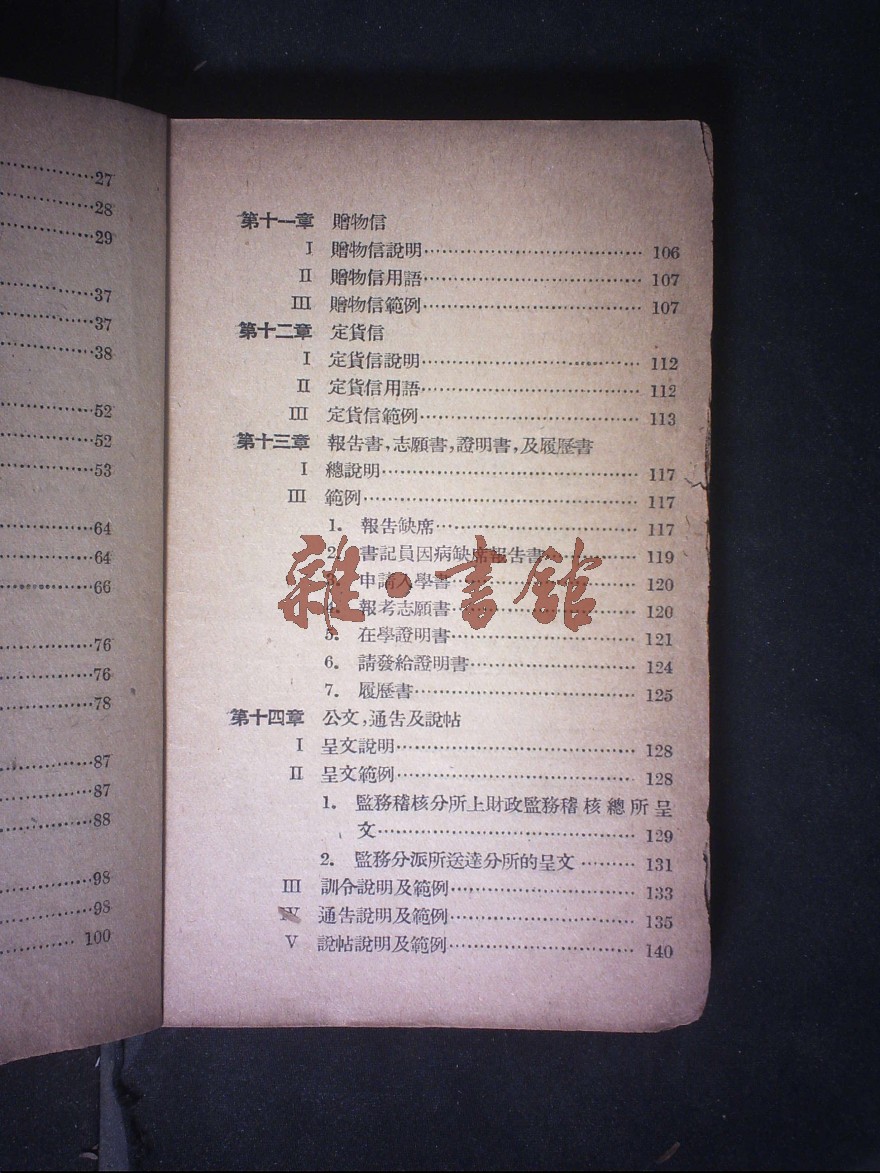 27
28
29
37
37
38
52
52
53
64
64
66
76
76
78
87
87
88
98
98
100
第十一章 贈物信
I 贈物信說明 106
II 贈物信用語 107
III 贈物信範例 107
第十二章 定貨信
I 定貨信說明 112
II 定貨信用語 112
III 定貨信範例 113
第十三章 報告書，志願書，證明書，及履歷書
I 總說明 117
III 範例 117
1. 報告缺席 117
2. 書記員因病缺席報告書 119
3. 申請入學書 120
4. 報考志願書 120
5. 在學證明書 121
6. 請發給證明書 124
7. 履歷書 125
第十四章 公文，通告及說帖
I 呈文說明 128
II 呈文範例 128
1. 監務稽核分所上財政監務稽核總所呈
文 129
2. 監務分派所送達分所的呈文 131
III 訓令說明及範例 133
IV 通告說明及範例 135
V 說帖說明及範例 140
雜·書館